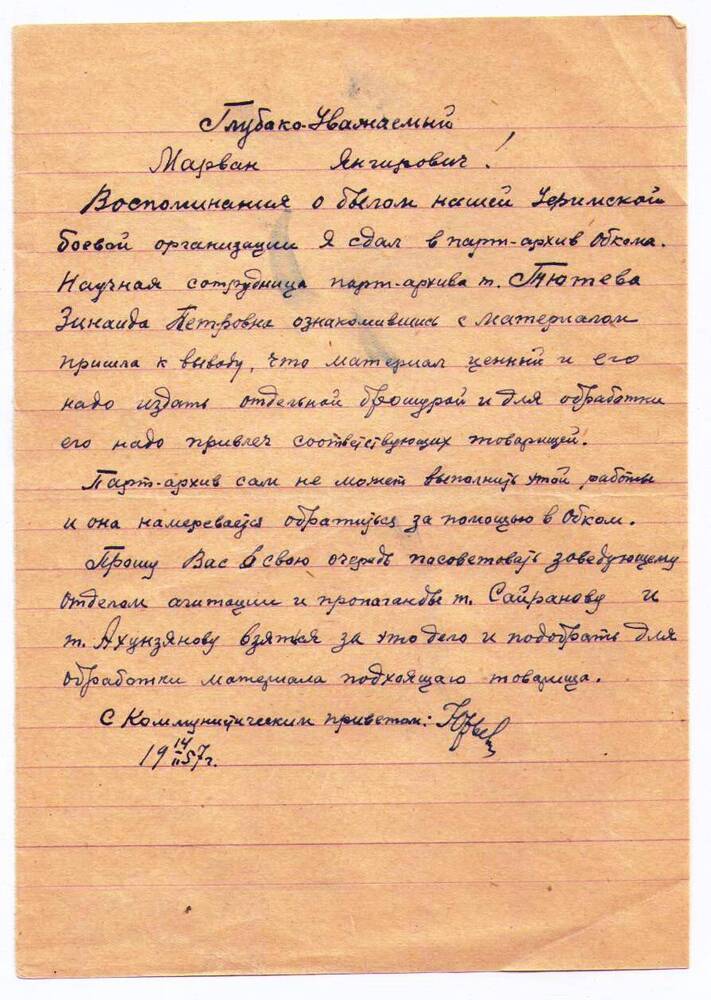 Глубако-Уважаемый
Марван Янгирович!
Воспоминания о былом нашей Уфимской
боевой организации Я сдал в парт-архив Обкома.
Научная сотрудница парт-архива т. Тютева
Зинаида Петровна ознакомившись с материалом
пришла к выводу, что материал ценный и его
надо издать отдельной брошурой и для обработки
его надо привлеч соответствующих товарищей.
Парт-архив сам не может выполнить этой работы
и она намеревается обратиться за помощью в Обком.
Прошу Вас в свою очередь пасоветовать заведующему
отделом агитации и пропаганды т. Сайранову и
т. Ахунзянову взяться за это дело и подобрать для
обработки материала подхоящаю товарища.
С Коммунитическим приветом:
19 14/II 57 г.